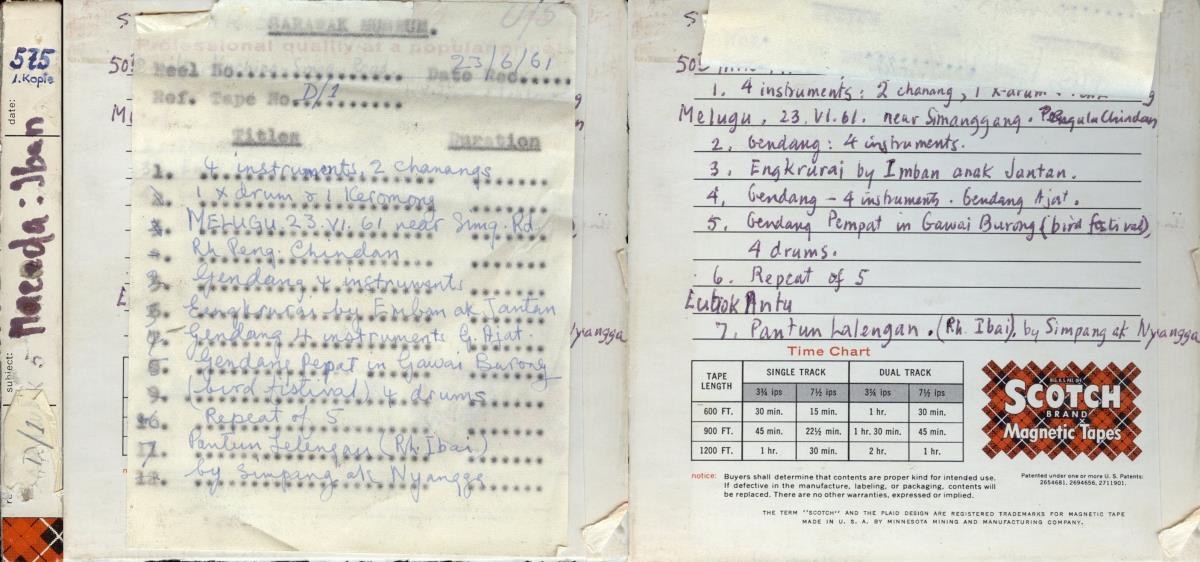 575
1. Kopie
date:
subject:
Maceda : Iban
D/1
SARAWAK MUSEUM.
Professional quality at a popular
Reel No. Date Rec. 23/6/61
Ref. Tape No. D/1
Titles Duration
1. 4 instruments, 2 chanangs
1 x drum & 1 Keromong
MELUGU 23.VI.61 near Simg. Rd.
Rh Peng. Chindan
Gendang 4 instruments
by Emban ak Jantan
Gendang 4 instruments G. Ajat.
Gendang Pepat in Gawai Burong
(bird festival) 4 drums
6. Repeat of 5
7. Pantun Lelengan (Rh. Ibai)
by Simpang ak Nyangga
1. 4 instruments: 2 chanang, 1 x drum
Melugu, 23.VI.61. near Simanggang. Chindan
2. Gendang: 4 instruments.
3. Engkrurai by Imban anak Jantan.
4. Gendang – 4 instruments. Gendang Ajat.
5. Gendang Pempat in Gawai Burong (bird festival),
4 drums.
6. Repeat of 5
Lubok Antu
7. Pantun Lalengan. (Rh. Ibai). by Simpang ak Nyangga
Time Chart
TAPE LENGTH SINGLE TRACK DUAL TRACK
3¾ ips 7½ ips 3¾ ips 7½ ips
600 FT. 30 min. 15 min. 1 hr. 30 min.
900 FT. 45 min. 22½ min. 1 hr. 30 min. 45 min.
1200 FT. 1 hr. 30 min. 2 hr. 1 hr.
REG. U.S. PAT. OFF.
SCOTCH
BRAND
Magnetic Tapes
notice: Buyers shall determine that contents are proper kind for intended use.
If defective in the manufacture, labeling, or packaging, contents will
be replaced. There are no other warranties, expressed or implied.
Patented under one or more U. S. Patents:
2654681, 2694656, 2711901.
THE TERM "SCOTCH" AND THE PLAID DESIGN ARE REGISTERED TRADEMARKS FOR MAGNETIC TAPE
MADE IN U. S. A. BY MINNESOTA MINING AND MANUFACTURING COMPANY.